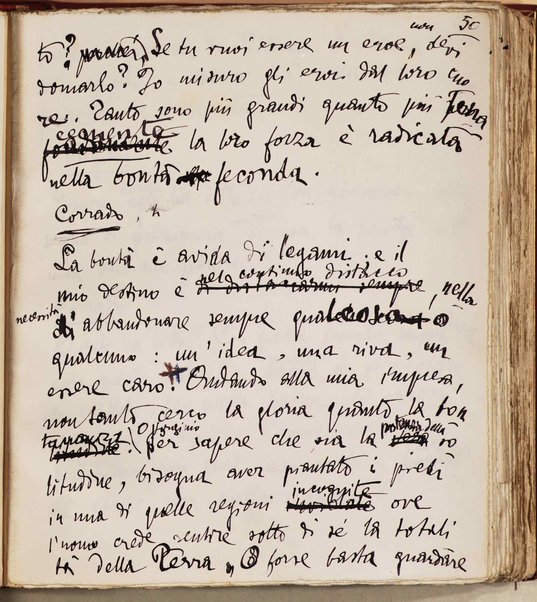 non 50
tò? Se tu vuoi essere un eroe, devi
domarlo? Io misuro gli eroi dal loro cuo
re. Tanto sono più grandi quanto più tena
cemente la loro forza è radicata
nella bontà feconda.
Corrado.
La bontà è avida di legami. e il
nel continuo distacco
mio destino è di distaccarmi sempre, nella
necessità
di abbandonare sempre qualcosa o
qualcuno: un'idea, una riva, un
essere caro. Andando alla mia impresa,
non tanto cerco la gloria quanto la lon
tananza. O Virginio
per sapere che sia la potenza della so
litudine, bisogna aver piantato i piedi
incognite
in una di quelle regioni ove
l'uomo crede sentire sotto di sé la totali
tà della Terra. O forse basta guardare